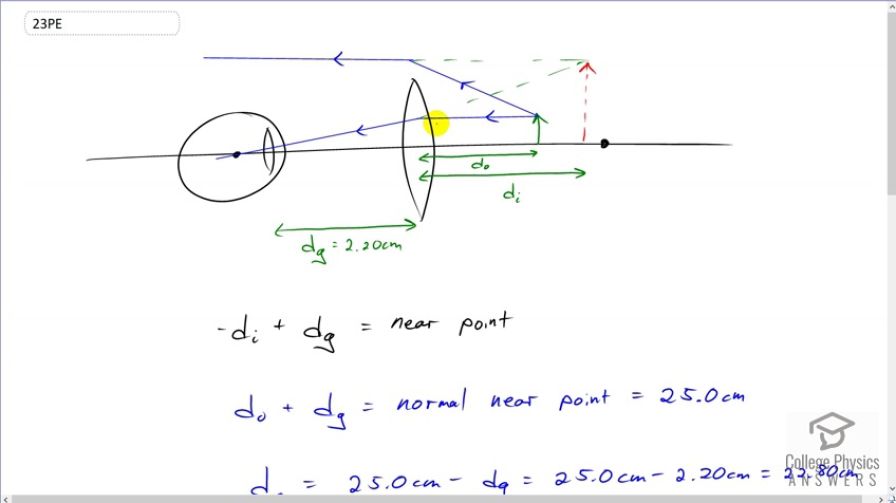 23PE
d₀
dᵢ
d_g = 2.20cm
-dᵢ + d_g = near point
d₀ + d_g = normal near point = 25.0cm
d. = 25.0cm - d_g = 25.0cm - 2.20cm = 22.80cm
College Physics
ANSWERS